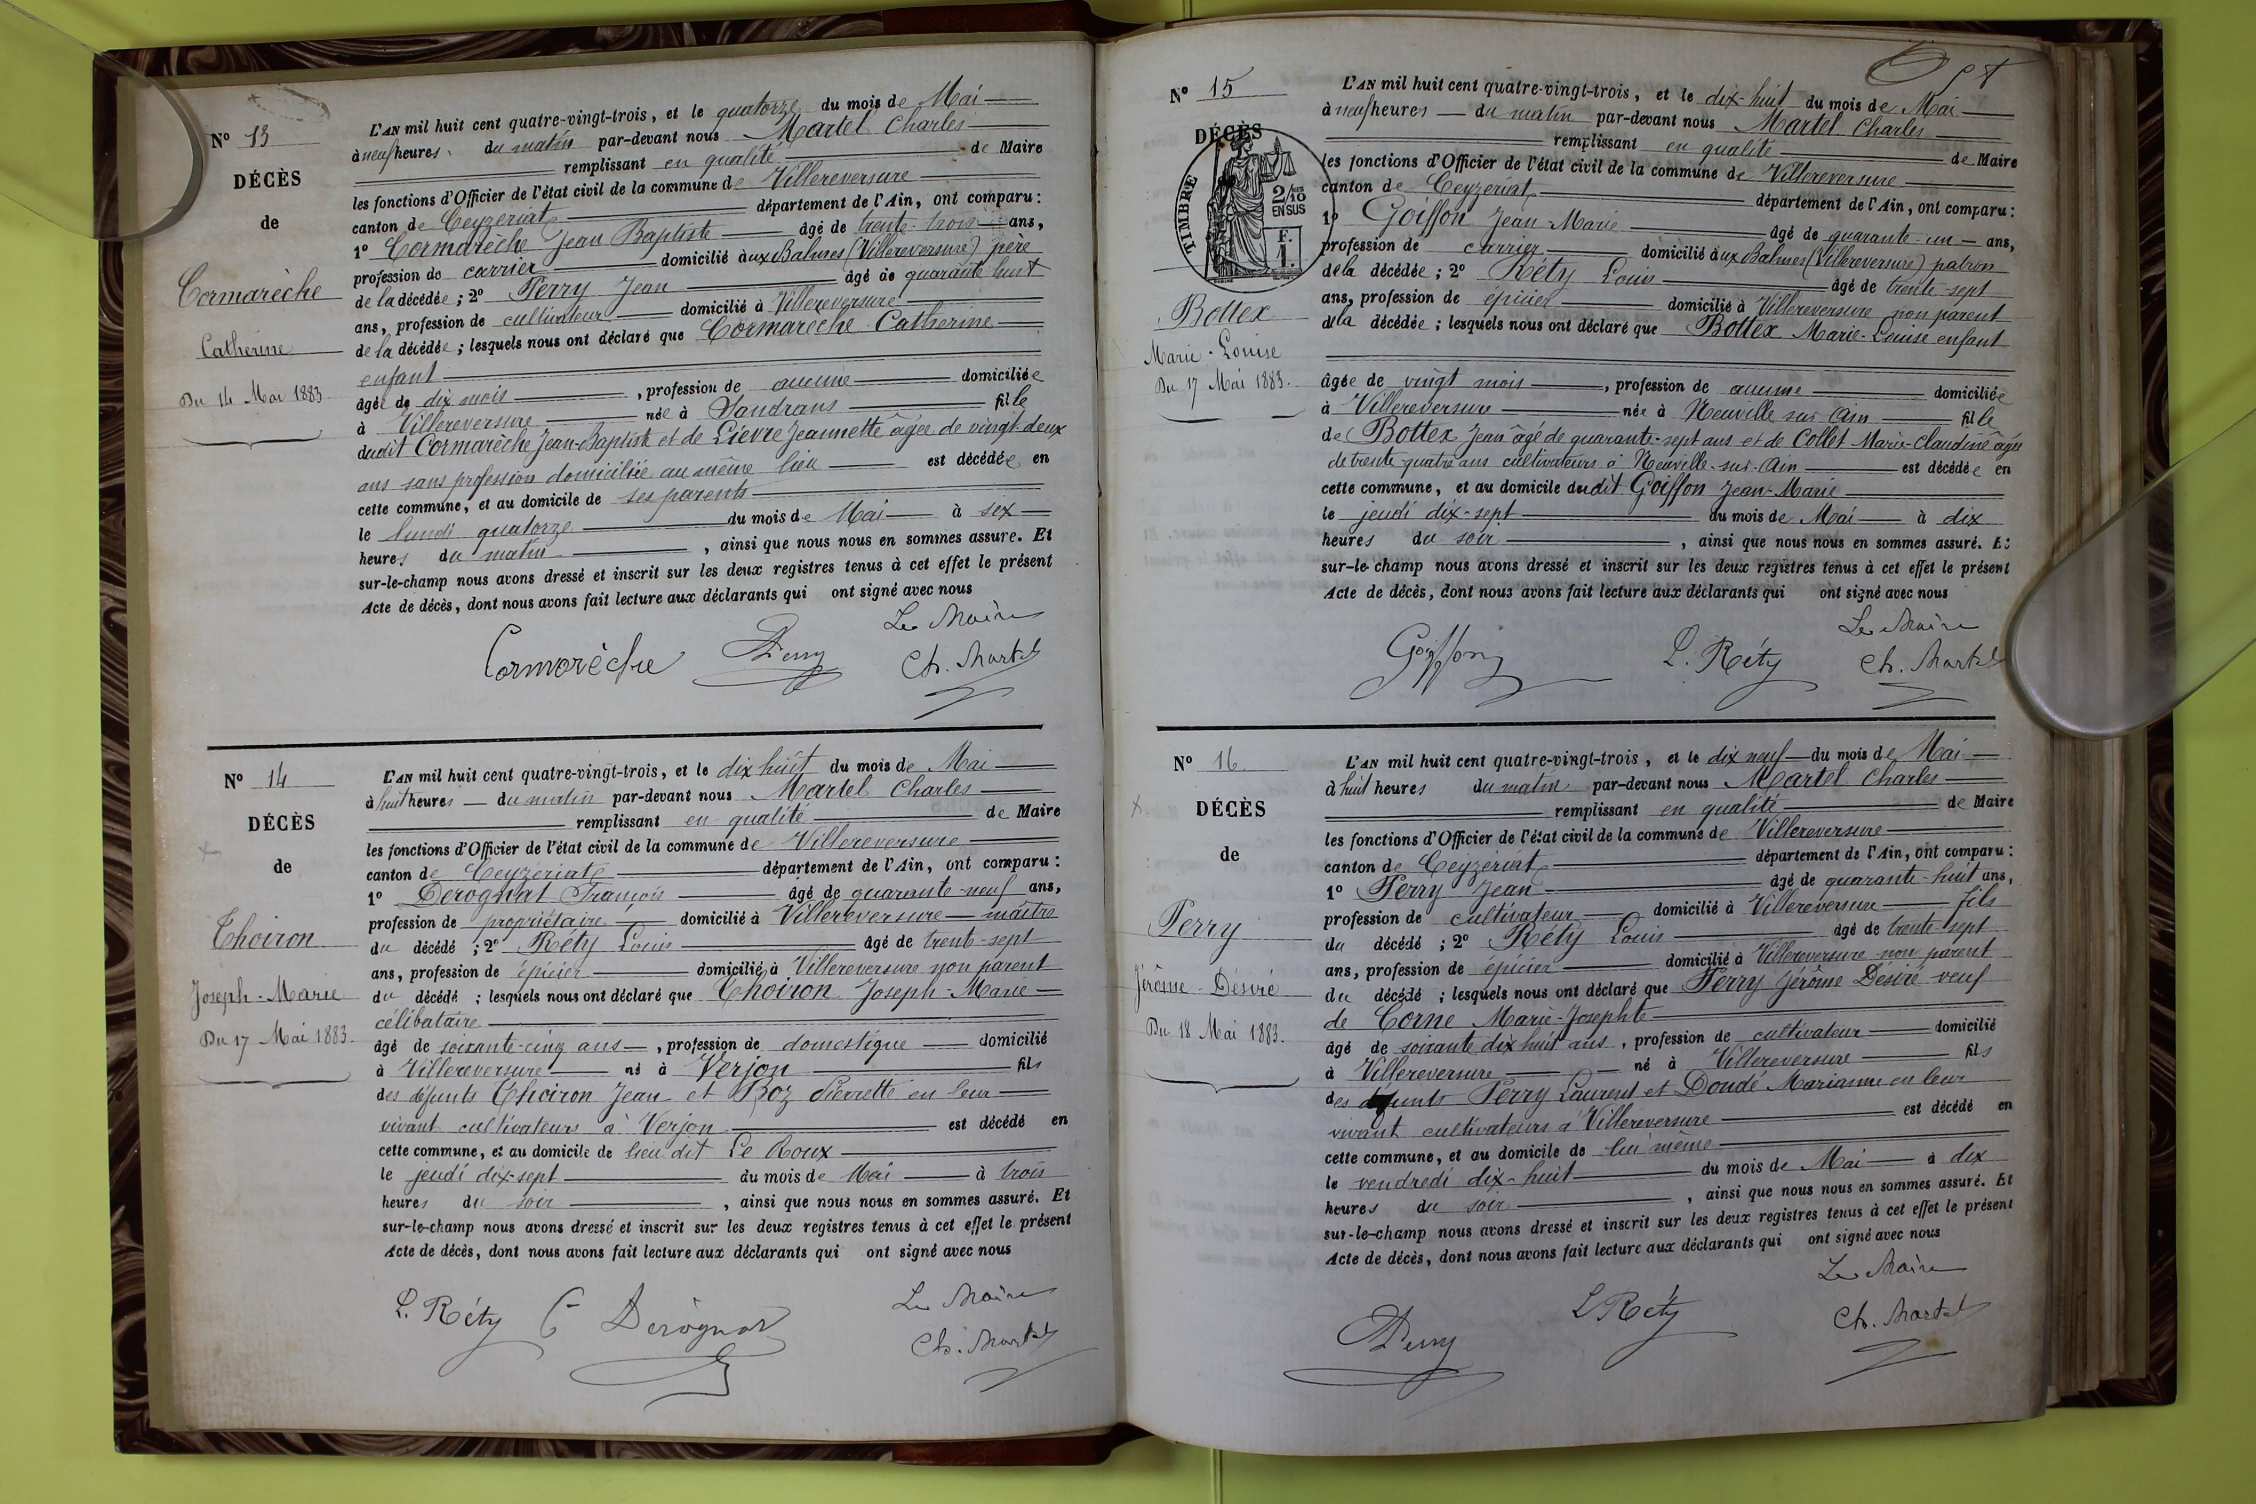 N° 13
DÉCÈS
de
Cormarèche
Catherine
Du 14 Mai 1883
L'AN mil huit cent quatre-vingt-trois, et le quatorze du mois de Mai
à neuf heures du matin par-devant nous Martel Charles
remplissant en qualité de Maire
les fonctions d'Officier de l'état civil de la commune de Villereversure
canton de Ceyzériat département de l'Ain, ont comparu :
1° Cormarèche Jean Baptiste âgé de trente-trois ans,
profession de carrier domicilié aux Balmes (Villereversure) père
de la décédée ; 2° Perry Jean âgé de quarante huit
ans, profession de cultivateur domicilié à Villereversure
de la décédée ; lesquels nous ont déclaré que Cormarèche Catherine
enfant
âgée de dix mois, profession de aucune domiciliée
à Villereversure née à Sandrans fille
dudit Cormarèche Jean-Baptiste et de Lievre Jeannette âgée de vingt-deux
ans sans profession domiciliée au même lieu est décédée en
cette commune, et au domicile de ses parents
le lundi quatorze du mois de Mai à six
heures du matin, ainsi que nous nous en sommes assuré. Et
sur-le-champ nous avons dressé et inscrit sur les deux registres tenus à cet effet le présent
Acte de décès, dont nous avons fait lecture aux déclarants qui ont signé avec nous
Le Maire
Cormorèche Perry Ch. Martel
N° 14
DÉCÈS
de
Thoiron
Joseph-Marie
Du 17 Mai 1883.
L'AN mil huit cent quatre-vingt-trois, et le dix huit du mois de Mai
à huit heures du matin par-devant nous Martel Charles
remplissant en qualité de Maire
les fonctions d'Officier de l'état civil de la commune de Villereversure
canton de Ceyzériat département de l'Ain, ont comparu :
1° Derognat François âgé de quarante-neuf ans,
profession de propriétaire domicilié à Villereversure maître
du décédé ; 2° Réty Louis âgé de trente-sept
ans, profession de épicier domicilié à Villereversure non parent
du décédé ; lesquels nous ont déclaré que Thoiron Joseph-Marie
célibataire
âgé de soixante-cinq ans, profession de domestique domicilié
à Villereversure né à Verjon fils
des défunts Thoiron Jean et Boz Pierrette en leur
vivant cultivateurs à Verjon est décédé en
cette commune, et au domicile de lieu dit Le Roux
le jeudi dix-sept du mois de Mai à trois
heures du soir, ainsi que nous nous en sommes assuré. Et
sur-le-champ nous avons dressé et inscrit sur les deux registres tenus à cet effet le présent
Acte de décès, dont nous avons fait lecture aux déclarants qui ont signé avec nous
Le Maire
L. Réty Derognat Ch. Martel
N° 15
DÉCÈS
TIMBRE
2/10
EN SUS
F.
1.
Bottex
Marie-Louise
Du 17 Mai 1883.
L'AN mil huit cent quatre-vingt-trois, et le dix-huit du mois de Mai
à neuf heures du matin par-devant nous Martel Charles
remplissant en qualité de Maire
les fonctions d'Officier de l'état civil de la commune de Villereversure
canton de Ceyzériat département de l'Ain, ont comparu :
1° Goiffon Jean-Marie âgé de quarante-un ans,
profession de carrier domicilié aux Balmes (Villereversure) patron
de la décédée ; 2° Réty Louis âgé de trente-sept
ans, profession de épicier domicilié à Villereversure non parent
de la décédée ; lesquels nous ont déclaré que Bottex Marie-Louise enfant
âgée de vingt mois, profession de aucune domiciliée
à Villereversure née à Neuville sur Ain fille
de Bottex Jean âgé de quarante-sept ans et de Collet Marie-Claudine âgée
de trente quatre ans cultivateurs à Neuville-sur-Ain est décédée en
cette commune, et au domicile dudit Goiffon Jean-Marie
le jeudi dix-sept du mois de Mai à dix
heures du soir, ainsi que nous nous en sommes assuré. Et
sur-le-champ nous avons dressé et inscrit sur les deux registres tenus à cet effet le présent
Acte de décès, dont nous avons fait lecture aux déclarants qui ont signé avec nous
Le Maire
Goiffon L. Réty Ch. Martel
N° 16
DÉCÈS
de
Perry
Jérôme-Désiré
Du 18 Mai 1883.
L'AN mil huit cent quatre-vingt-trois, et le dix neuf du mois de Mai
à huit heures du matin par-devant nous Martel Charles
remplissant en qualité de Maire
les fonctions d'Officier de l'état civil de la commune de Villereversure
canton de Ceyzériat département de l'Ain, ont comparu :
1° Perry Jean âgé de quarante-huit ans,
profession de cultivateur domicilié à Villereversure fils
du décédé ; 2° Réty Louis âgé de trente-sept
ans, profession de épicier domicilié à Villereversure non parent
du décédé ; lesquels nous ont déclaré que Perry Jérôme Désiré veuf
de Corne Marie-Josephte
âgé de soixante dix huit ans, profession de cultivateur domicilié
à Villereversure né à Villereversure fils
des défunts Perry Laurent et Doudé Marianne en leur
vivant cultivateurs à Villereversure est décédé en
cette commune, et au domicile de lui même
le vendredi dix-huit du mois de Mai à dix
heures du soir, ainsi que nous nous en sommes assuré. Et
sur-le-champ nous avons dressé et inscrit sur les deux registres tenus à cet effet le présent
Acte de décès, dont nous avons fait lecture aux déclarants qui ont signé avec nous
Le Maire
Perry L Réty Ch. Martel